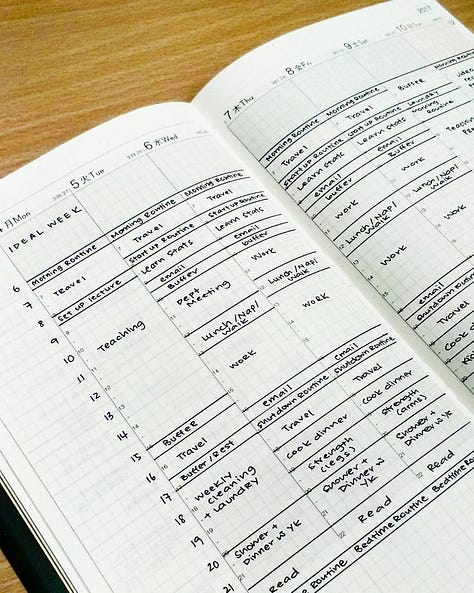 2017
月Mon
5 火Tue
6 水Wed
7 木Thu
8 金Fri
9 土Sat
10 日Sun
IDEAL WEEK
6
7
8
9
10
11
12
13
14
15
16
17
18
19
20
21
Morning Routine
Travel
Set up lecture
Teaching
Buffer
Travel
Buffer/Rest
weekly
cleaning
+ laundry
Shower +
Dinner w YK
Read
Morning Routine
Travel
Start up Routine
Learn Stats
email
Buffer
Dept
Meeting
Lunch/Nap/
Walk
Work
email
Shutdown Routine
Travel
Cook dinner
Strength
(legs)
Shower +
Dinner w YK
Read
Bedtime Routine
Morning Routine
Travel
Start up Routine
Learn Stats
email
buffer
Work
Lunch/Nap/
Walk
Work
Email
Shutdown Routine
Travel
Cook dinner
Strength
(arms)
Shower +
Dinner w YK
Read
Bedtime Routine
Morning Routine
Travel
Start up Routine
Learn Stats
email
buffer
Work
Lunch/Nap/
Walk
Work
email
Shutdown Routine
Travel
Morning Routine
Travel
Start up Routine
Learn Stats
email
Buffer
Work
Lunch/Nap/
Walk
Work
Buffer
Laundry
Morning
Routine
Morning Routine